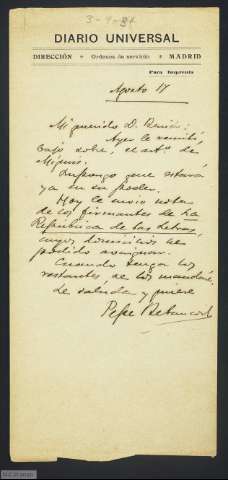 3-4-84
DIARIO UNIVERSAL
DIRECCIÓN * Ordenes de servicio * MADRID
Para Imprenta
Agosto 17
Mi querido D. Benito:
Ayer le remití,
bajo sobre, el artº de
Miquis.
Supongo que estará
ya en su poder.
Hoy le envío nota
de los firmantes de La
República de las Letras,
cuyos domicilios he
podido averiguar.
Cuando tenga los
restantes se los mandaré.
Le saluda y quiere
Pepe Betancort